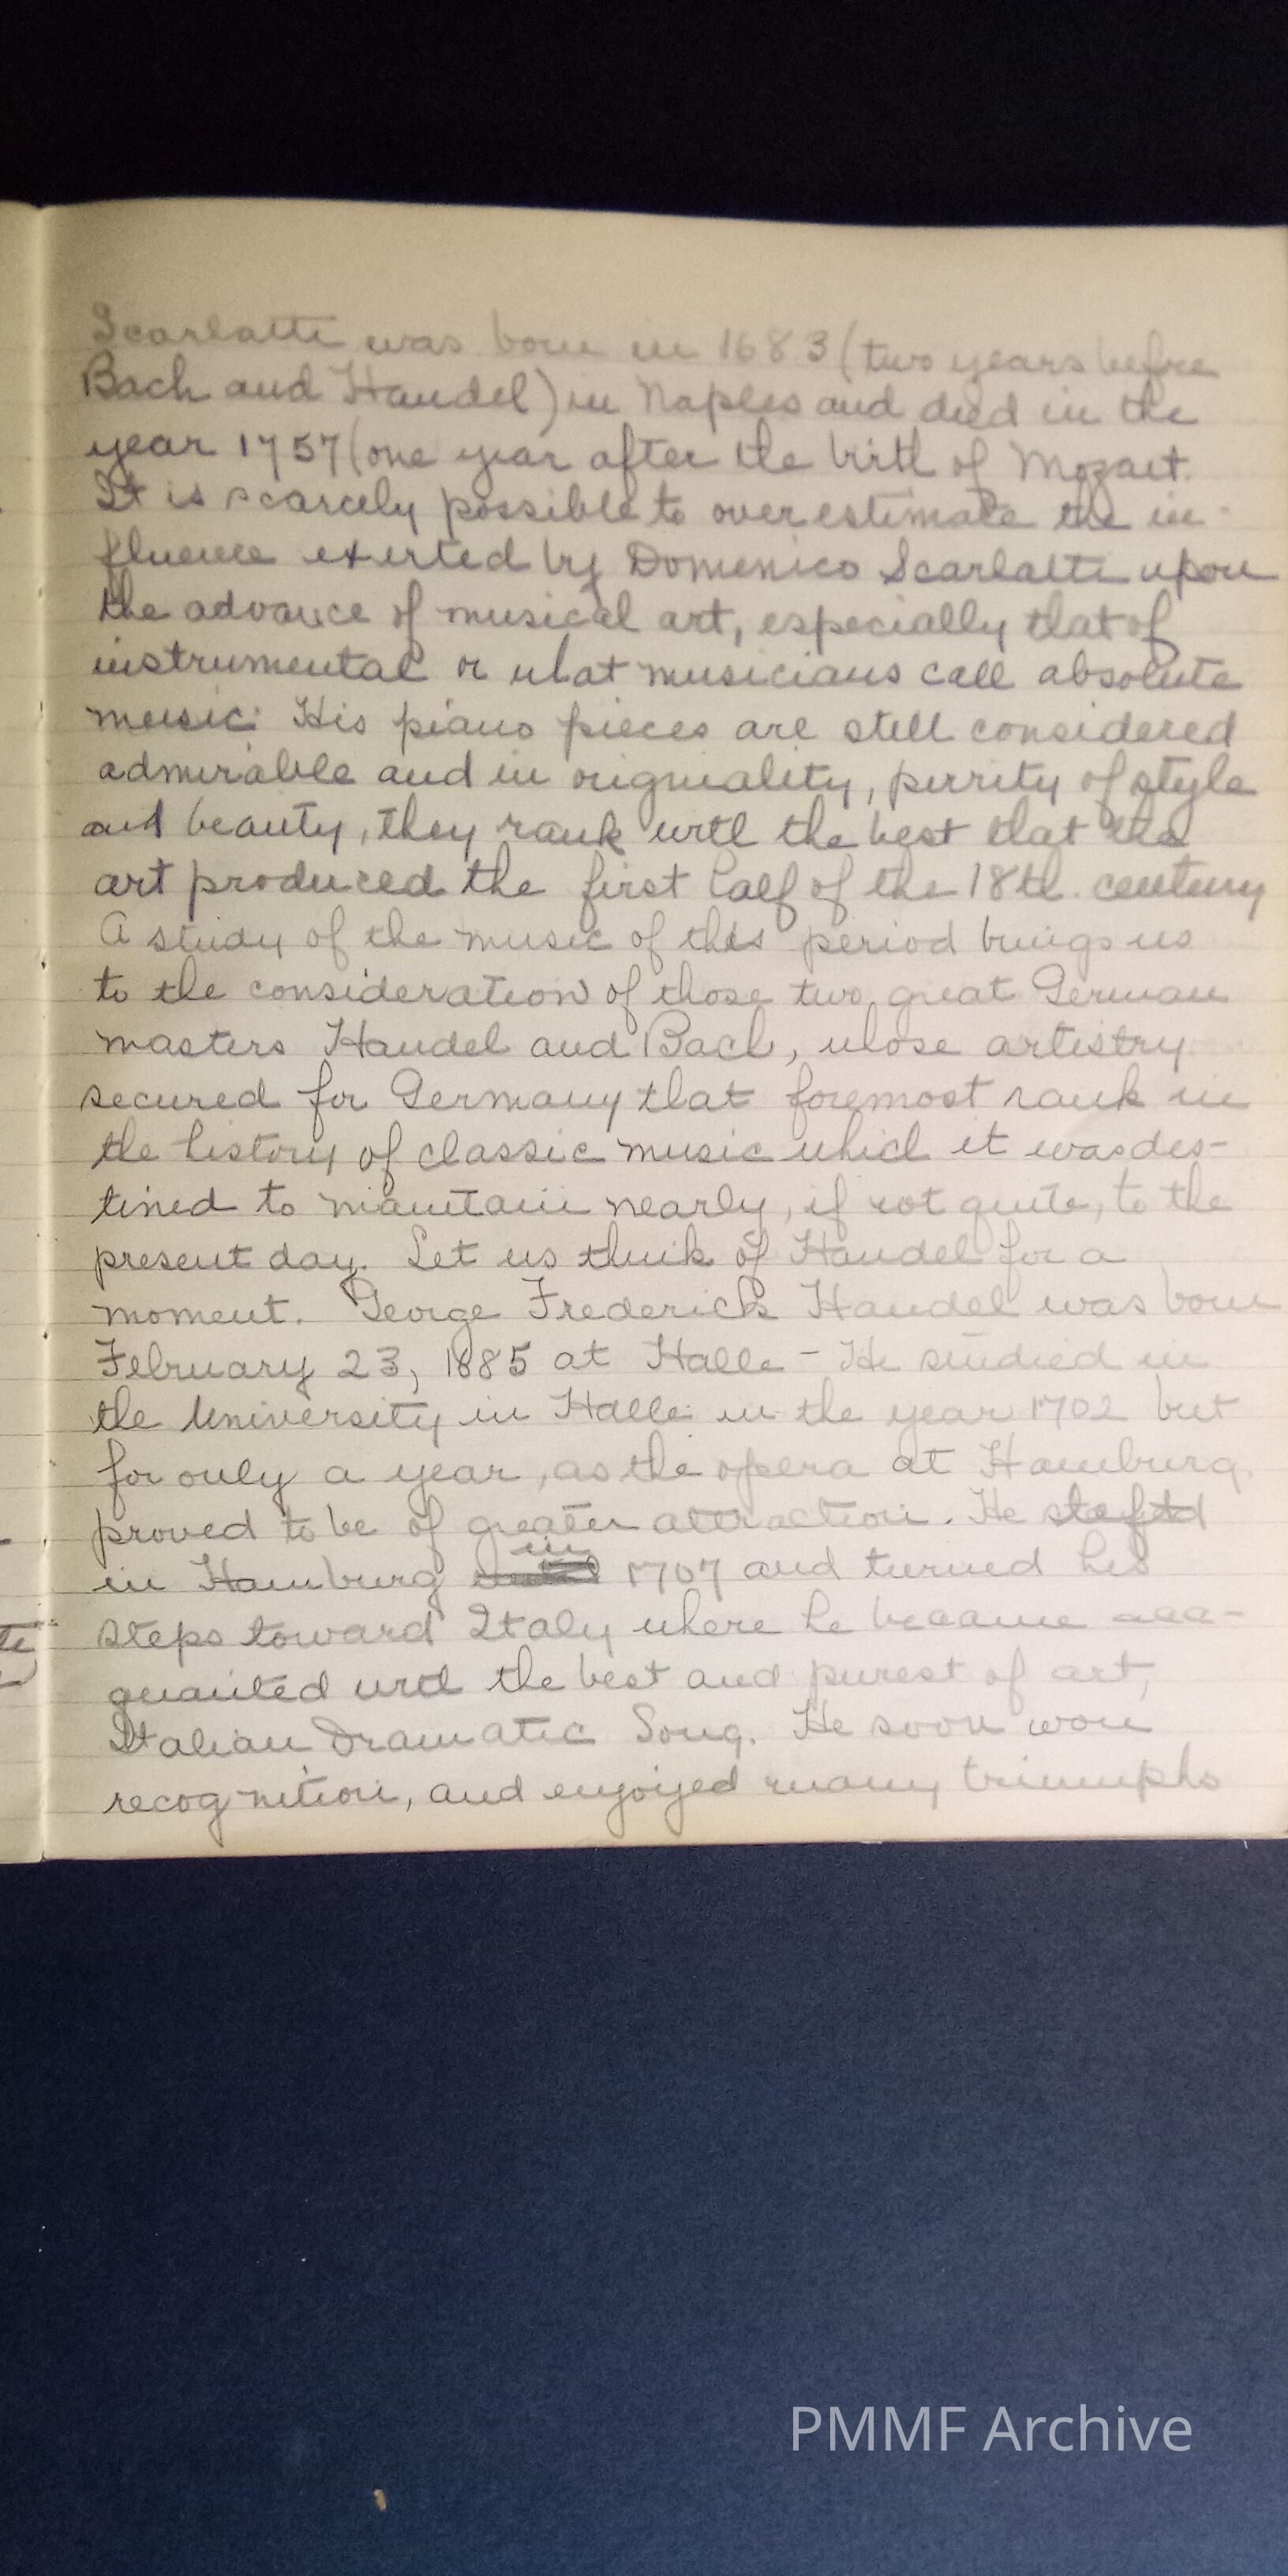 Scarlatti was born in 1683 (two years before
Bach and Handel) in Naples and died in the
year 1757 (one year after the birth of Mozart.
It is scarcely possible to overestimate the in-
fluence exerted by Domenico Scarlatti upon
the advance of musical art, especially that of
instrumental or what musicians call absolute
music. His piano pieces are still considered
admirable and in originality, purity of style
and beauty, they rank with the best that the
art produced the first half of the 18th. century
A study of the music of this period brings us
to the consideration of those two great German
masters Handel and Bach, whose artistry
secured for Germany that foremost rank in
the history of classic music which it was des-
tined to maintain nearly, if not quite, to the
present day. Let us think of Handel for a
moment. George Frederick Handel was born
February 23, 1885 at Halle - He studied in
the University in Halle in the year 1702 but
for only a year, as the opera at Hamburg
proved to be of greater attraction. He
in Hamburg in 1707 and turned his
steps toward Italy where he became acc-
quainted with the best and purest of art,
Italian Dramatic Song. He soon won
recognition, and enjoyed many triumphs
PMMF Archive